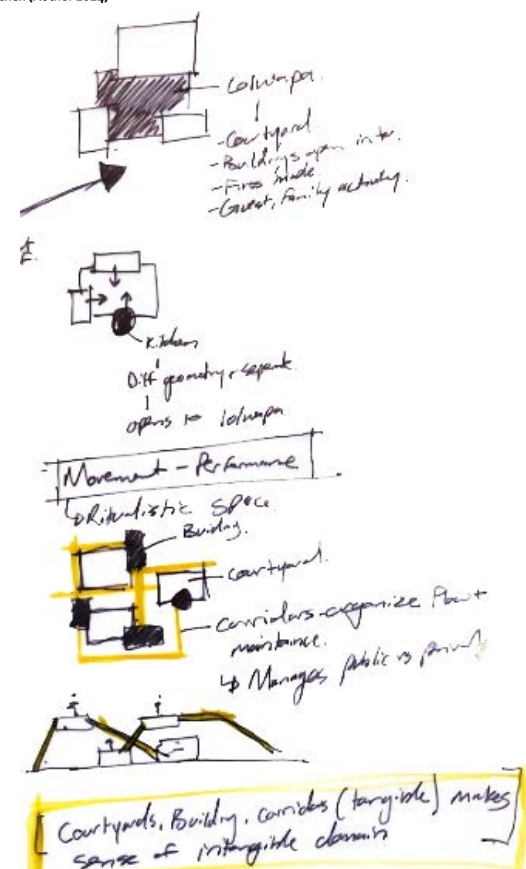 Lolwapa.
- Courtyard
- Buildings open into.
- Fires made.
- Guest, family activity.
Kitchen
Diff geometry + separate
opens to lolwapa
Movement - Performance
Ritualistic Space
Building.
Courtyard.
Corridors - organize flow +
maintance.
Manages public vs privat
Courtyards, Building, corridos (tangible) makes
sense of intangible domain